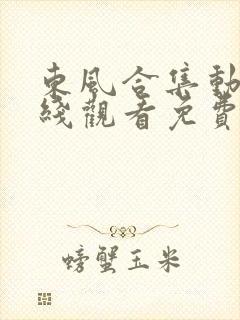 東風合集動
綫觀看免費
螃蟹玉米